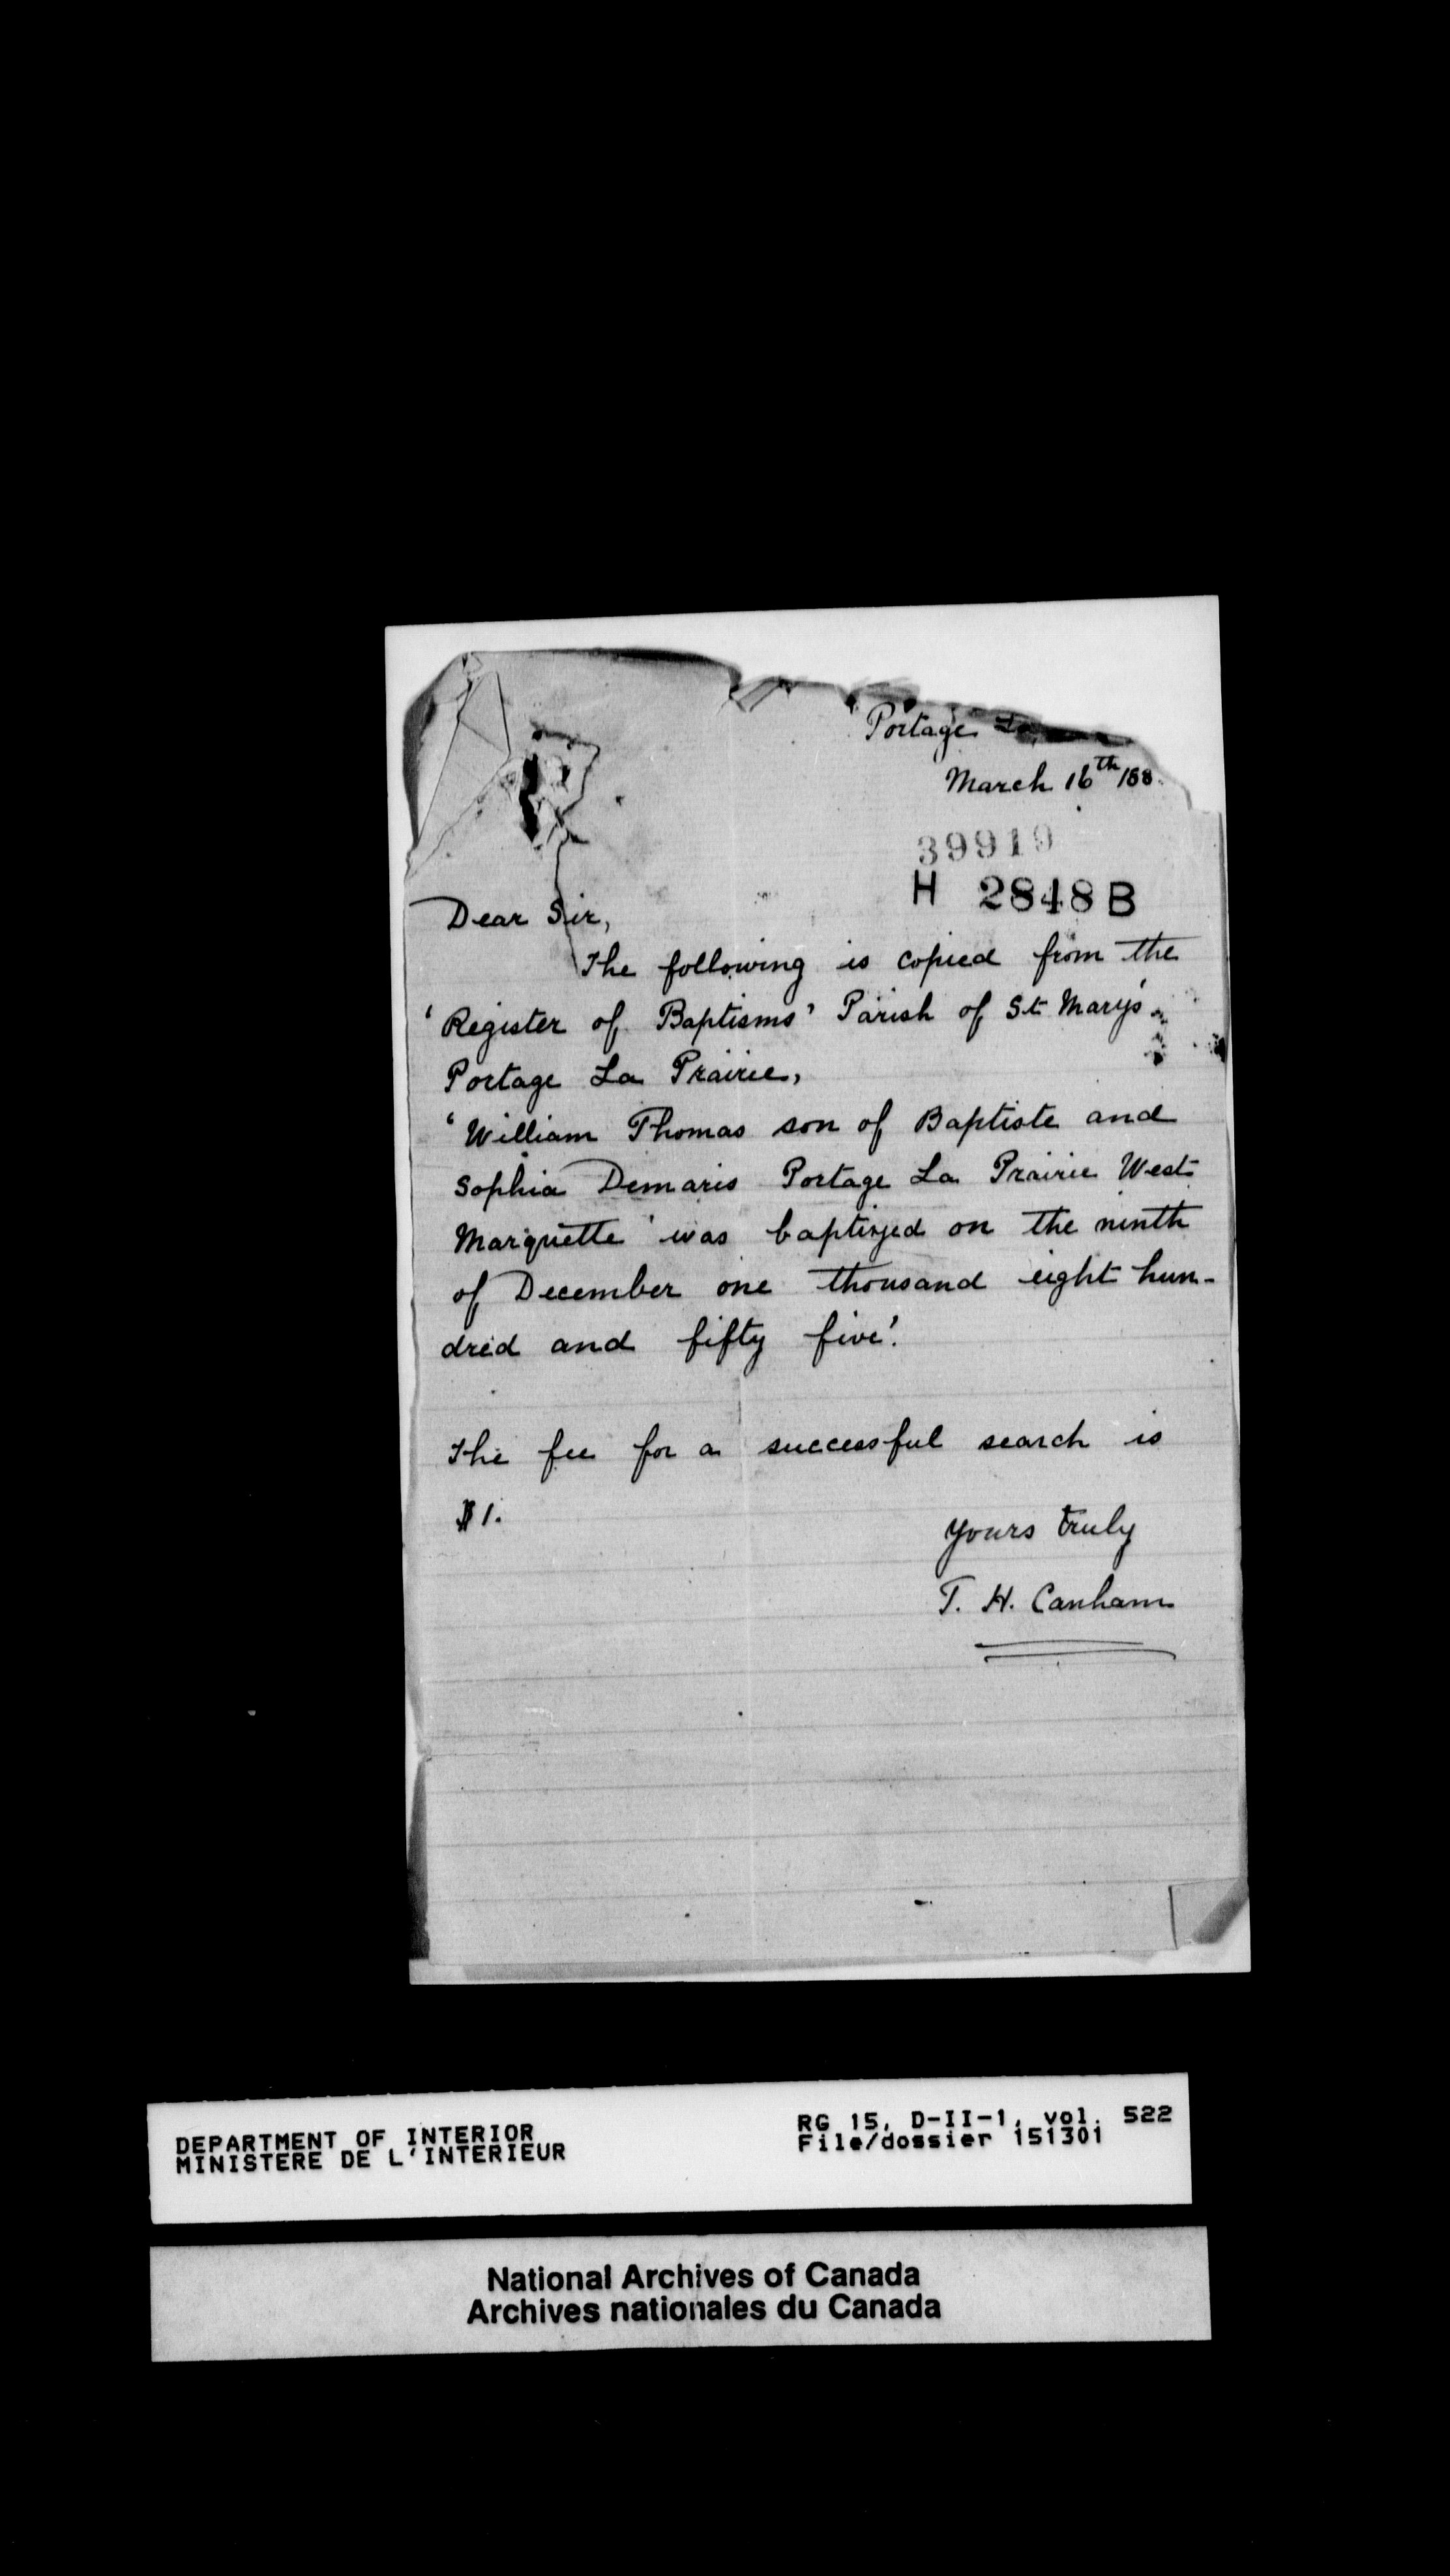 Portage La
March 16th /88
39919
H 2848 B
Dear Sir,
The following is copied from the
'Register of Baptisms' Parish of St Mary's
Portage La Prairie,
'William Thomas son of Baptiste and
Sophia Demaris Portage La Prairie West
Marquette was baptized on the ninth
of December one thousand eight hun-
dred and fifty five'.
The fee for a successful search is
$1.
Yours truly
T. H. Canham
DEPARTMENT OF INTERIOR
MINISTERE DE L'INTERIEUR
RG 15, D-II-1, vol. 522
File/dossier 151301
National Archives of Canada
Archives nationales du Canada